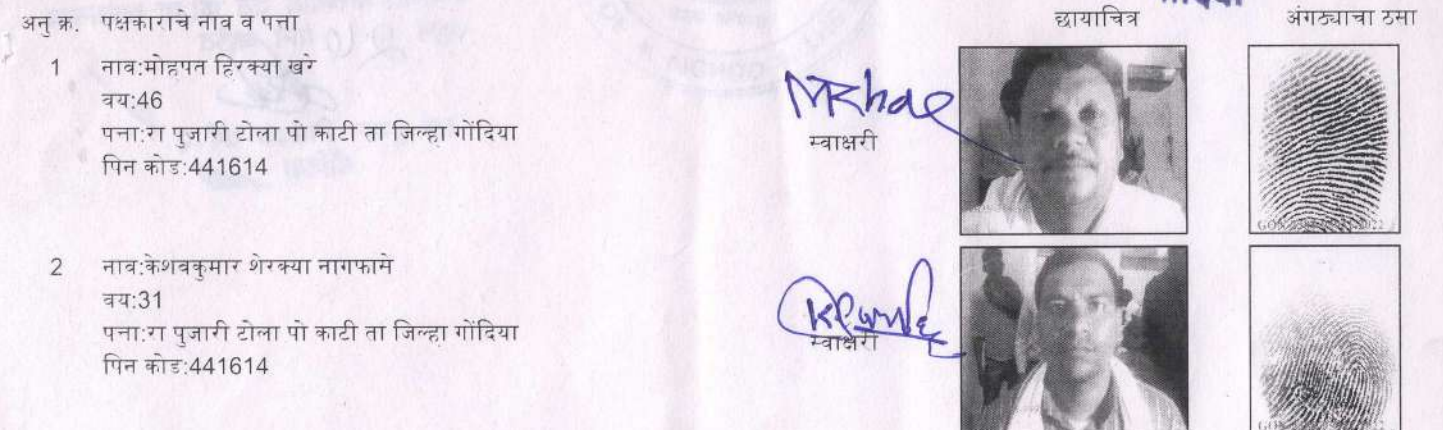 अनु क्र. पक्षकाराचे नाव व पत्ता छायाचित्र अंगठ्याचा ठसा
1 नाव:मोहपत हिरक्या खरे
वय:46
पत्ता:रा पुजारी टोला पो काटी ता जिल्हा गोंदिया
पिन कोड:441614
स्वाक्षरी
2 नाव:केशवकुमार शेरक्या नागफासे
वय:31
पत्ता:रा पुजारी टोला पो काटी ता जिल्हा गोंदिया
पिन कोड:441614
स्वाक्षरी